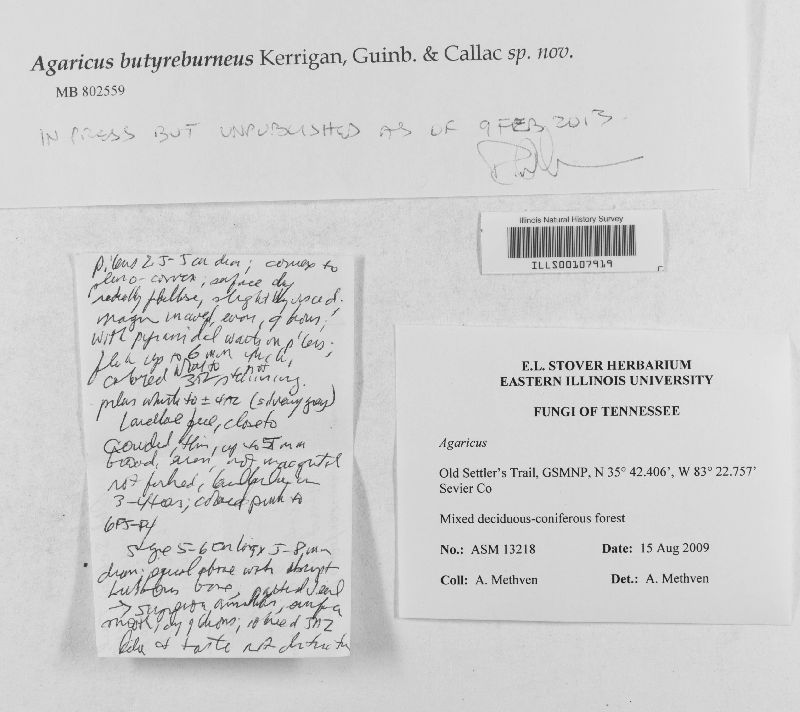 Agaricus butyreburneus Kerrigan, Guinb. & Callac sp. nov.
MB 802559
IN PRESS BUT UNPUBLISHED AS OF 9 FEB 2013
Illinois Natural History Survey
ILLS00107919
pileus 2.5-5 cm diam; convex to
plano-convex; surface dry
radially fibrillose, slightly
margin incurved, even,
with pyramidal warts on pileus;
flesh up to 6 mm thick,
colored white to not
3A2 staining.
pileus white to ± 4A2 (silvery gray)
Lamellae free, close to
crowded, thin, up to 5 mm
broad, even, not marginate
not forked, lamellulae in
3-4 tiers; colored pink to
6F5-F4
Stipe 5-6 cm long x 5-8 mm
diam; equal above with abrupt
bulbous base,
→ superior, annulus, surface
smooth, dry, colored 3A2
odor & taste not distinctive
E.L. STOVER HERBARIUM
EASTERN ILLINOIS UNIVERSITY
FUNGI OF TENNESSEE
Agaricus
Old Settler's Trail, GSMNP, N 35° 42.406', W 83° 22.757'
Sevier Co
Mixed deciduous-coniferous forest
No.: ASM 13218 Date: 15 Aug 2009
Coll: A. Methven Det.: A. Methven